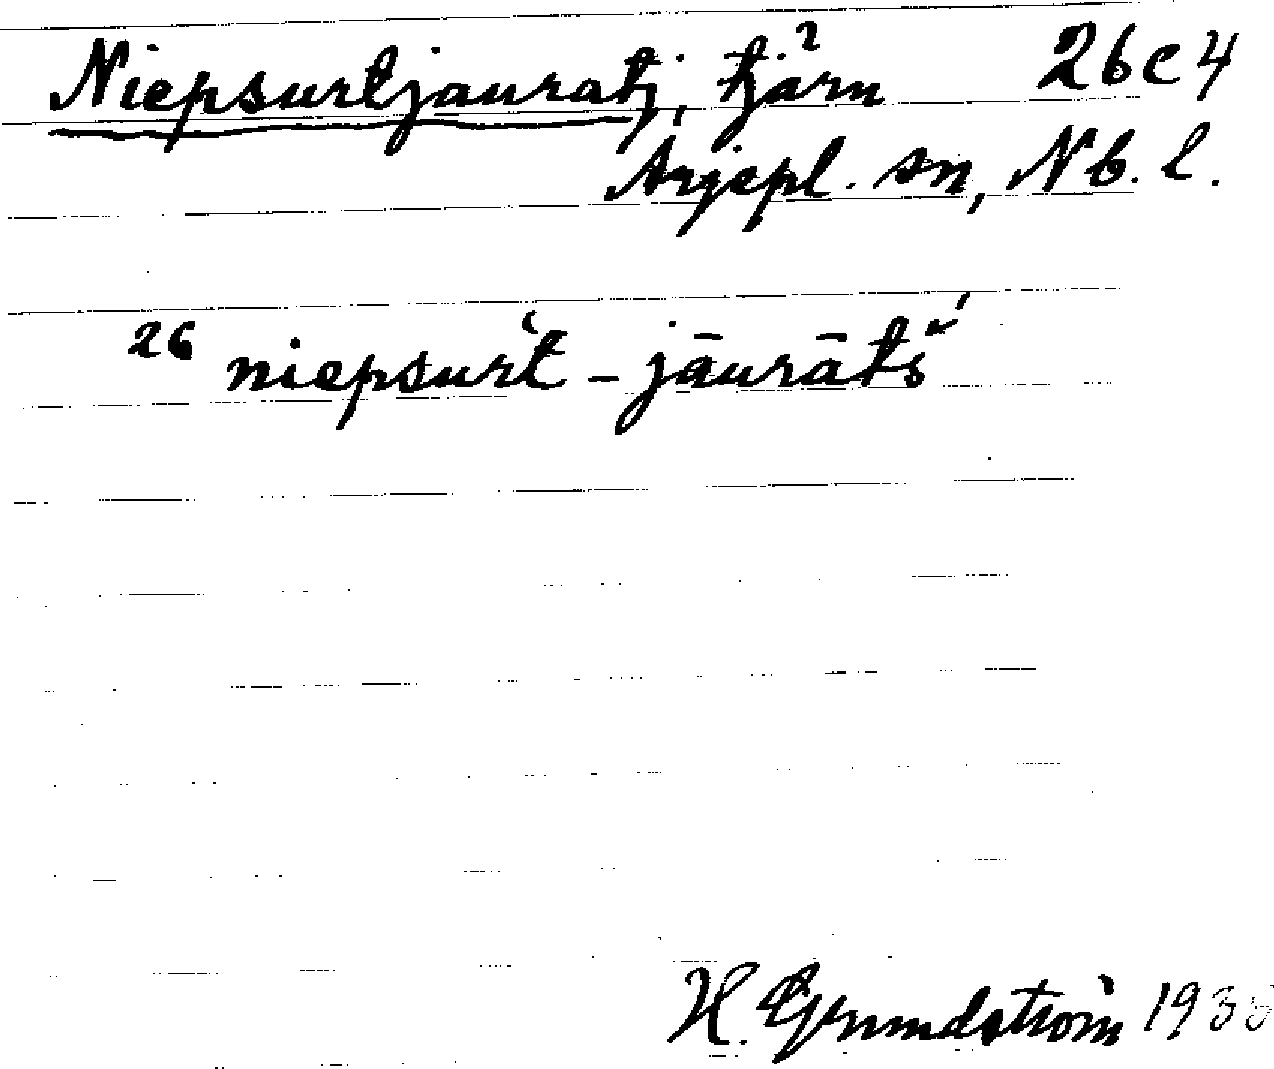 Niepsurtjauratj, tjärn² 26c4
Arjepl. sn, Nb. l.
26 niepsurt̔ - jāurātś
H. Grundström